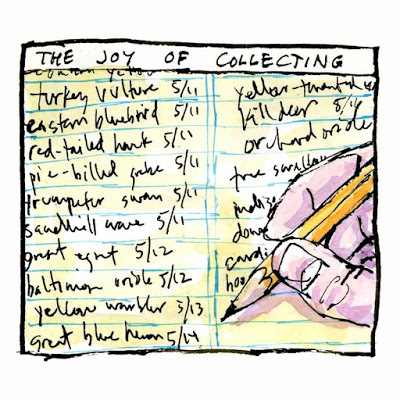 THE JOY OF COLLECTING
common yellow
turkey vulture 5/11
eastern bluebird 5/11
red-tailed hawk 5/11
pie-billed grebe 5/11
trumpeter swan 5/11
sandhill crane 5/11
great egret 5/12
baltimore oriole 5/12
yellow warbler 5/13
great blue heron 5/14
yellow-throated
killdeer 5/14
orchard oriole
tree swallow
cardi
hoo